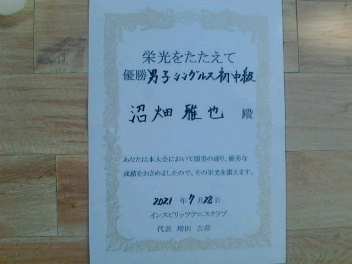 栄光をたたえて
優勝 男子シングルス初中級
沼畑 雅也 殿
あなたは本大会において頭書の通り、優秀な
成績をおさめましたので、その栄光を讃えます。
2021 年 7 月 28 日
インスピリッツテニスクラブ
代表 増田 吉彦